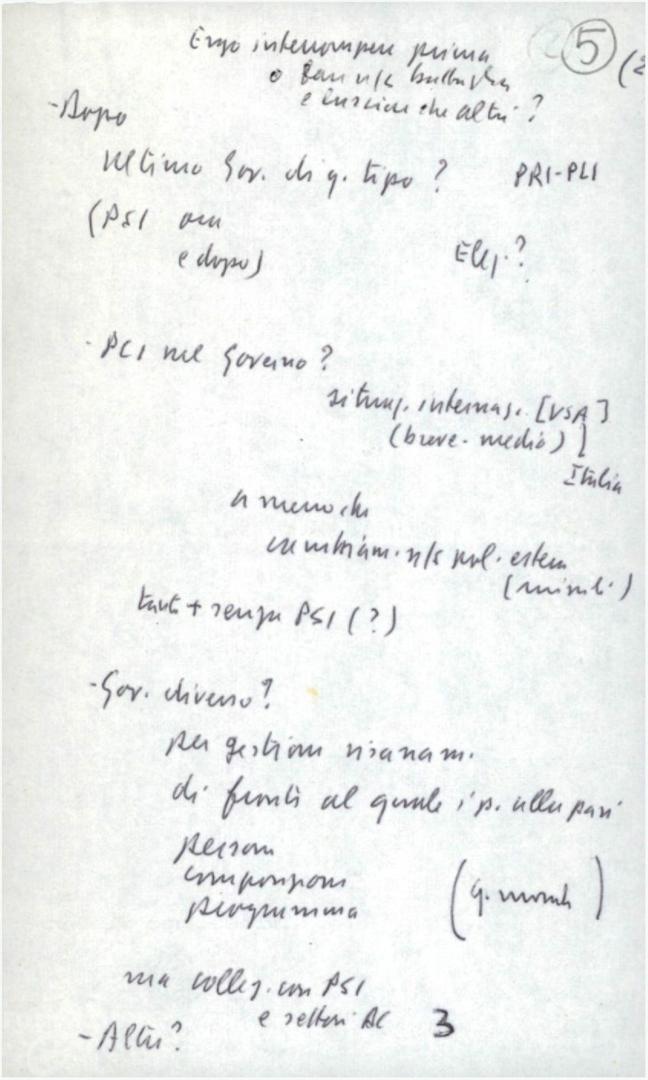 5 (2
Ergo interrompere prima
o
e lasciare che altri?
- Dopo
Ultimo Gov. di q. tipo? PRI-PLI
(PSI ora
e dopo) Elez.?
- PCI nel Governo?
situaz. internaz. [USA]
(breve-medio)]
Italia
a meno che
cambiam. n/s pol. estera
(missili)
tanto + senza PSI (?)
- Gov. diverso?
per gestione risanam.
di fronte al quale i p. alla pari
persone
composizione
programma (q. morale)
ma colleg. con PSI
e settori DC 3
- Altri?